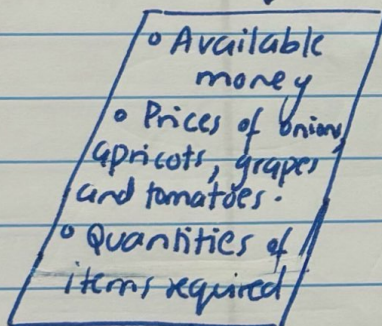 • Available
money
• Prices of onions,
apricots, grapes
and tomatoes.
• Quantities of
items required